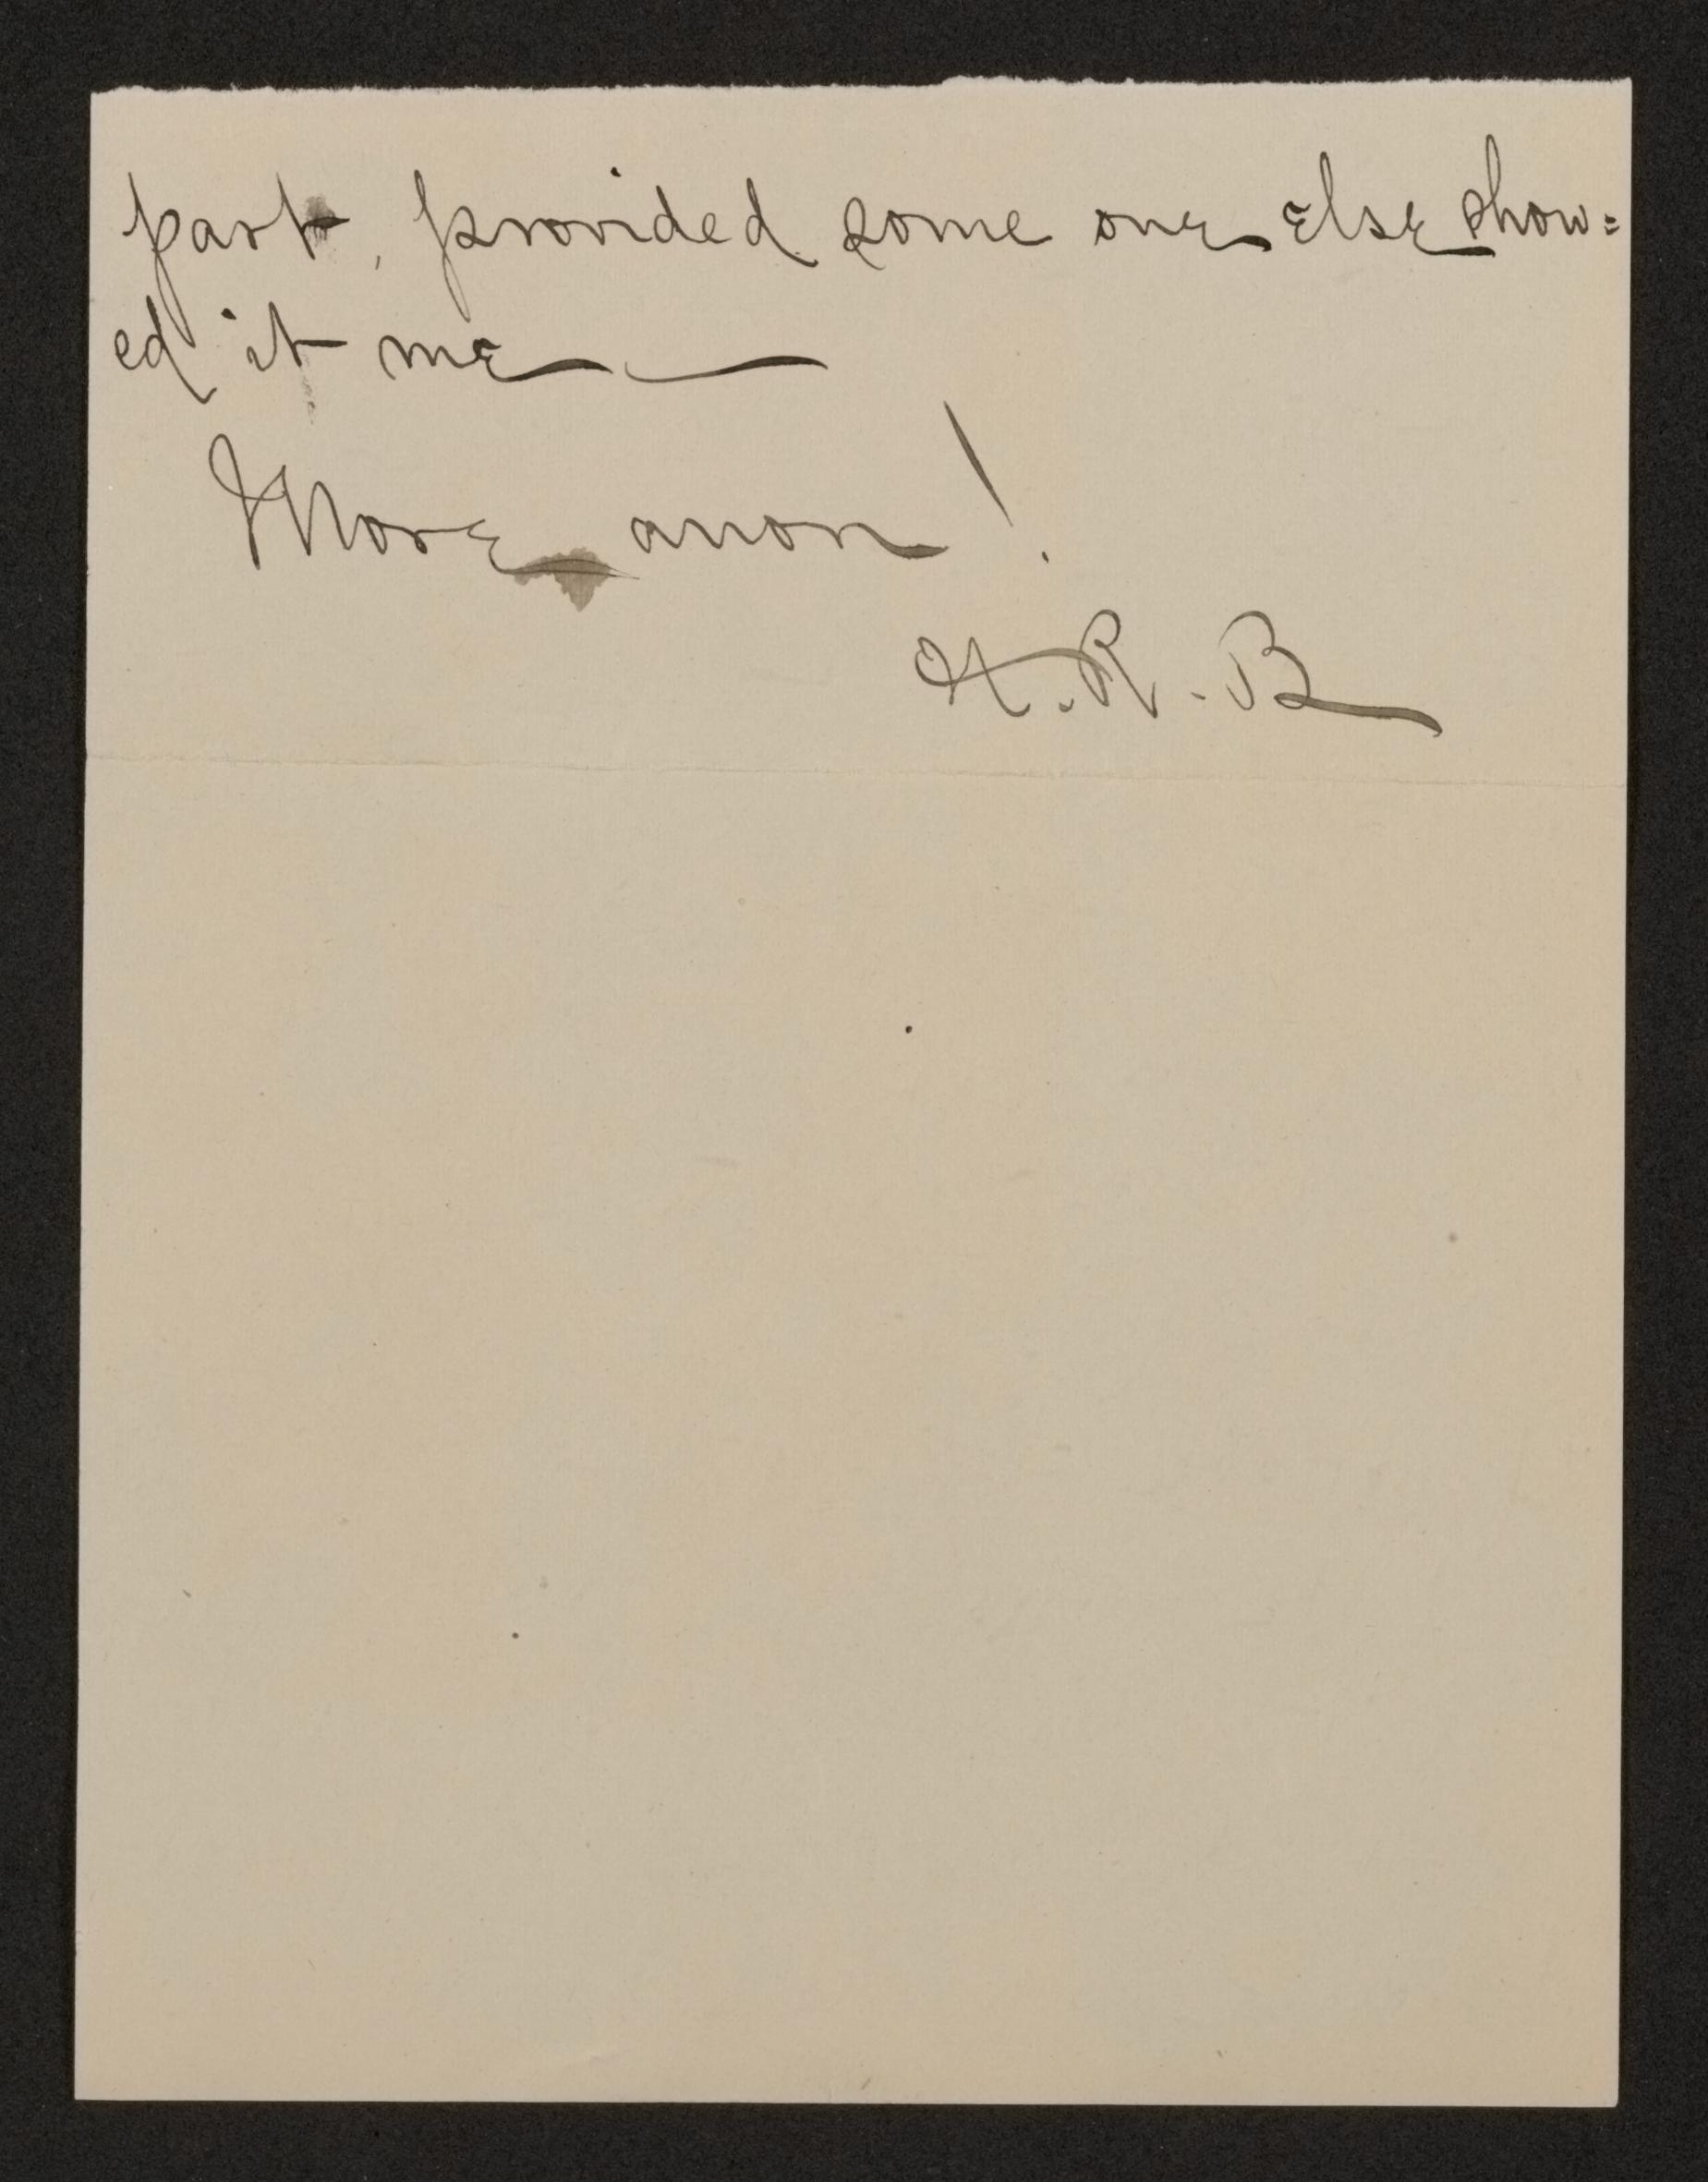 part, provided some one else show=
ed it me —
More anon!
H. R. B